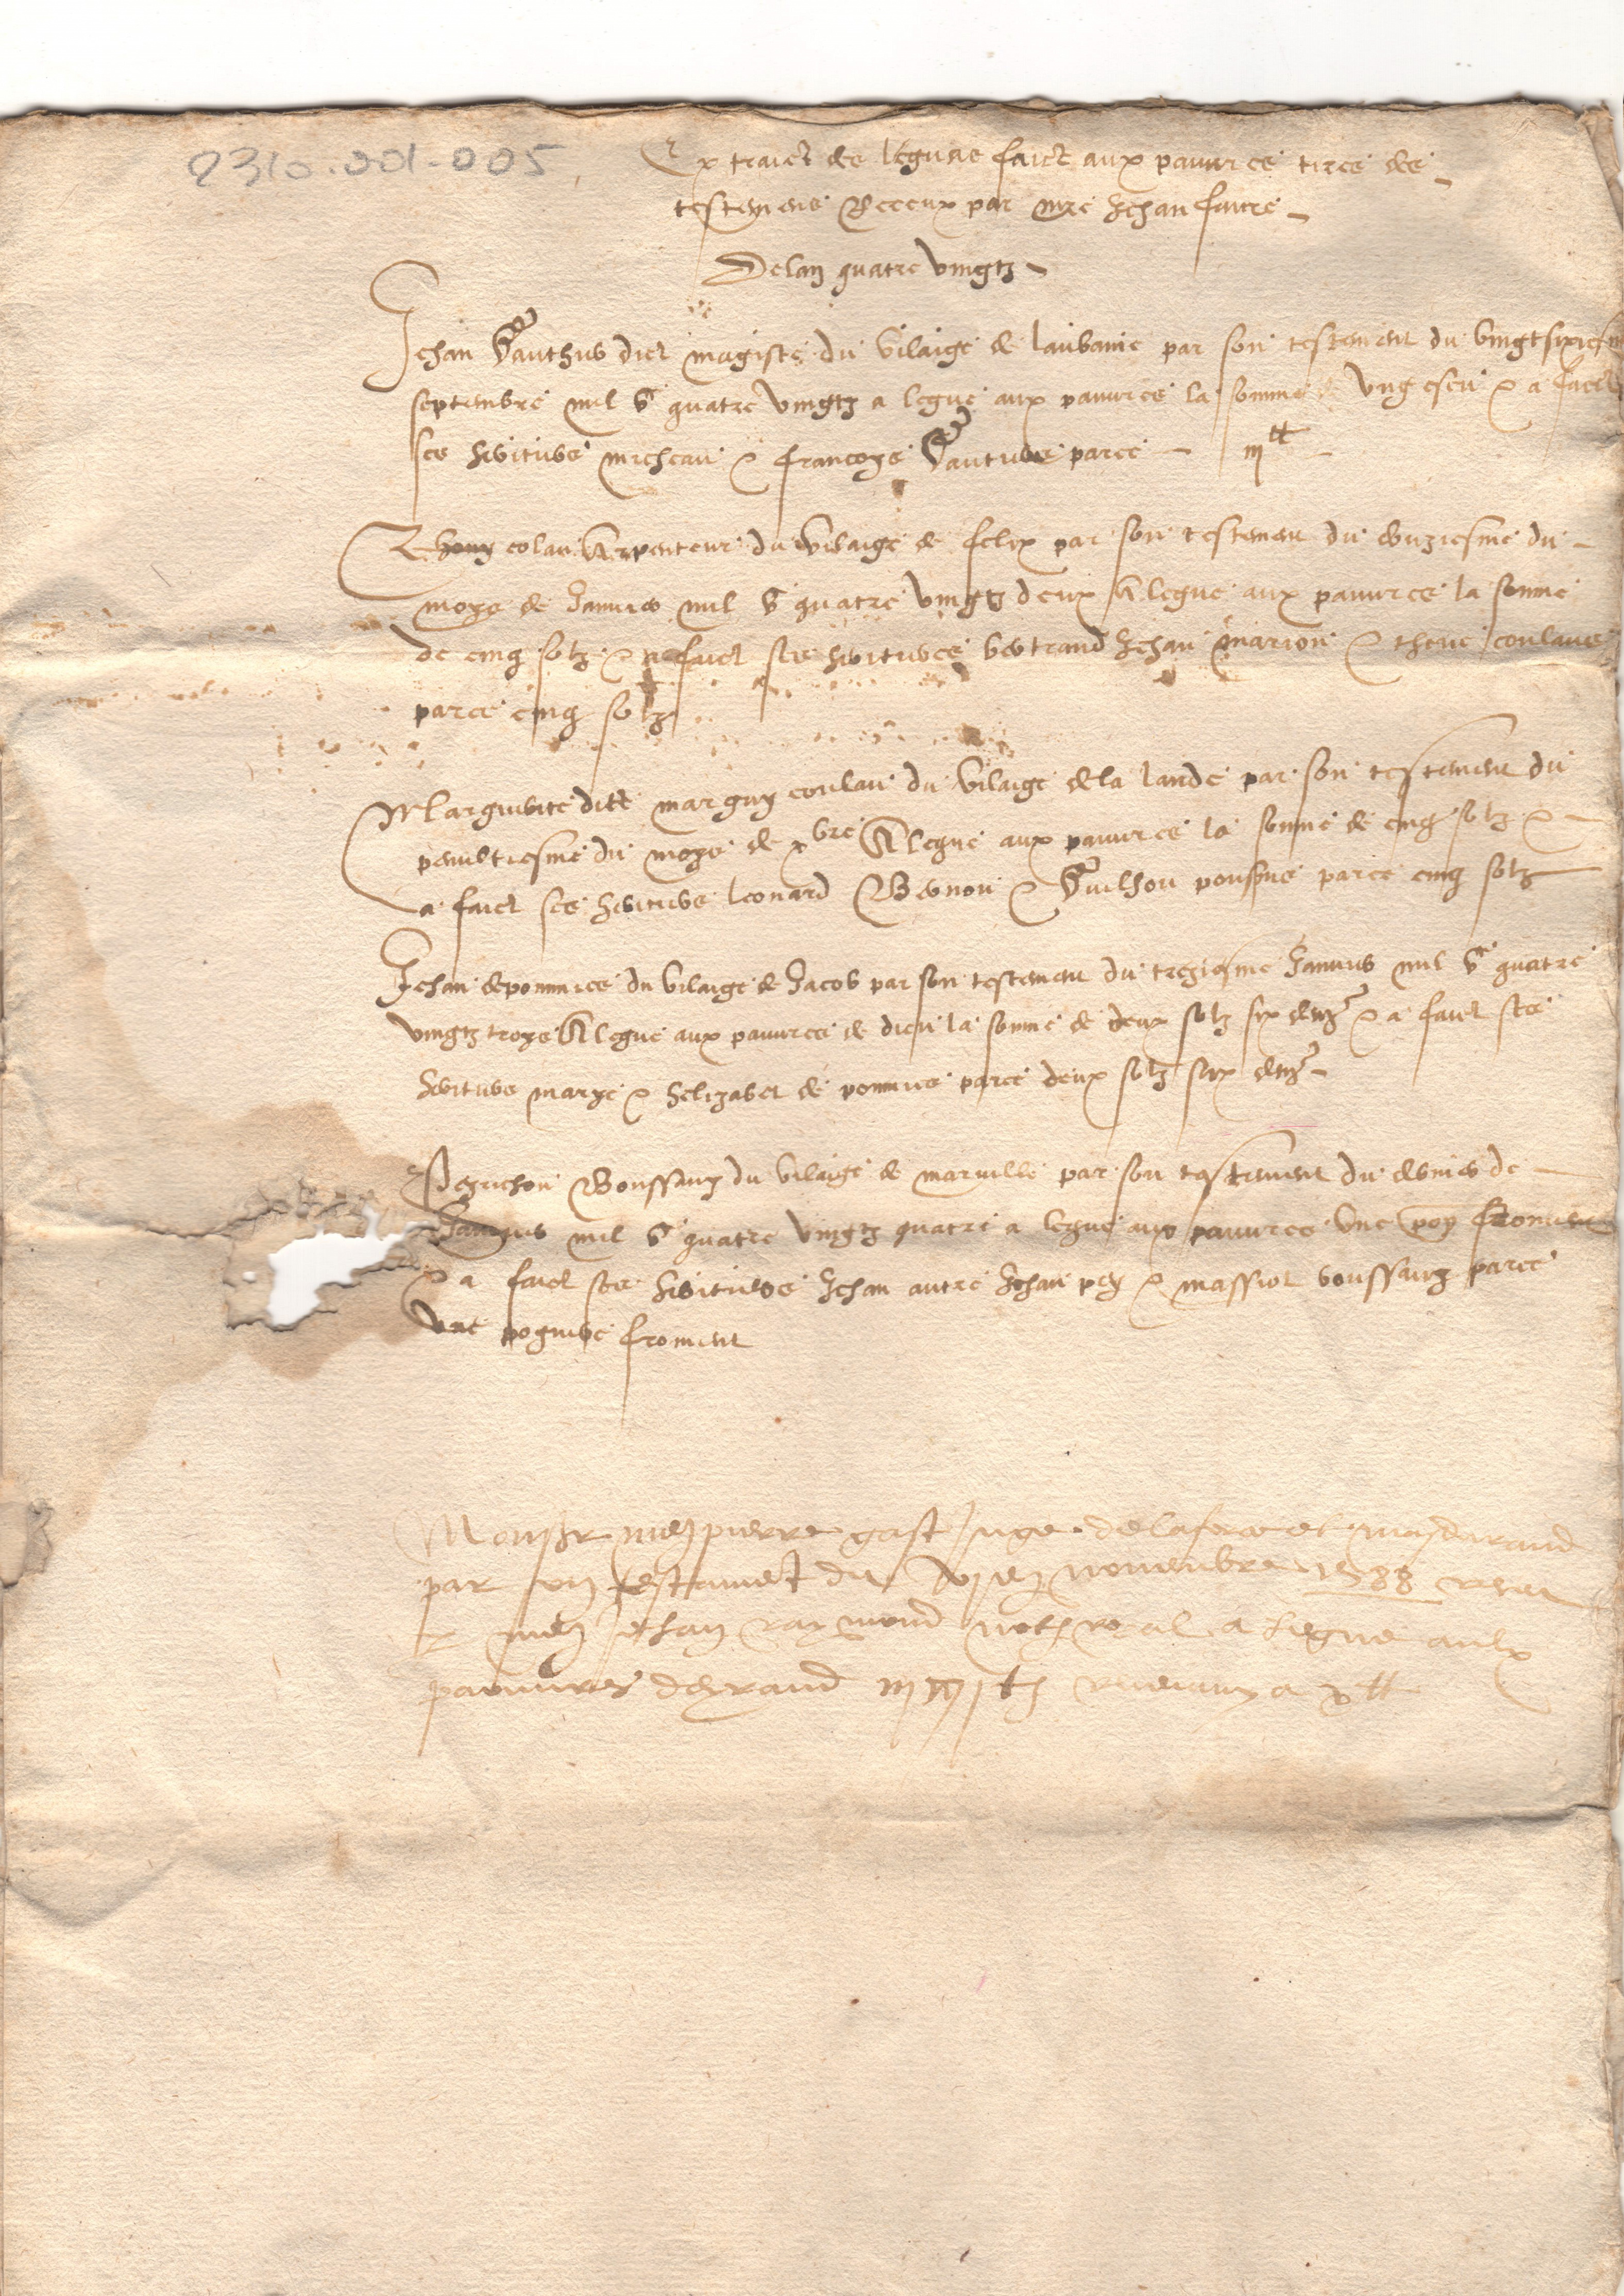 2310.001-005
Extraict des leguas faict aux pauvres tires des
testemens Receux par mre Jehan faure
De lan quatre vingtz
Jehan Gauthier dict magiste du vilaige de laubanie par son testement du vingtsixiesme
septembre mil vc quatre vingtz a legue aux pauvres la somme ung escu & a faict
ses heritiers micheau & francoys Gautiers parce iij tt
colau Arpenteur du vilaige de felix par son testement du unziesme du
moys de Janvier mil vc quatre vingtz deux A legue aux pauvres la somme
de cinq solz & a faict ses heritieres bertrand Jehan marion & theve coulaus
parce cinq solz
Marguerite ditte marguy coulau du vilaige de la lande par son testement du
penultiesme du moys de xbre A legue aux pauvres la somme de cinq solz &
a faict ses heritiers leonard & Guilhou parce cinq solz
Jehan de pommies du vilaige de Jacob par son testement du treziesme Janvier mil vc quatre
vingtz troys A legue aux pauvres de dieu la somme de deux solz six den & a faict ses
heritiers marye & helizabet de pommies parce deux solz six den
Peyrichon Boussary du vilaige de marville par son testement du dernier de
Janvier mil vc quatre vingtz quatre a legue aux pauvres une poy froment
& a faict ses heritiers Jehan autre Jehan pey & massiot boussary parce
une pogniere froment
Monsr me pierre gast Juge de laforce et masdurand
par son testament du novembre 1588 receu
p me Jehan raymond not royal a legue aulx
pauvres deyraud revenant a x tt